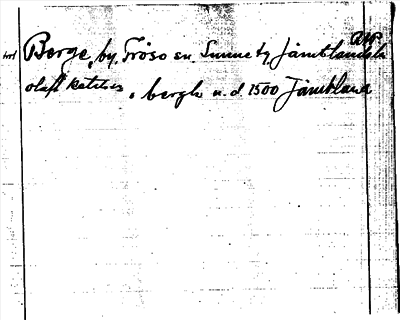 Berge, by, Frösö sn. Sunne tg Jämtlands la
olaff ketilss , bergh u. d 1500 Jämtland